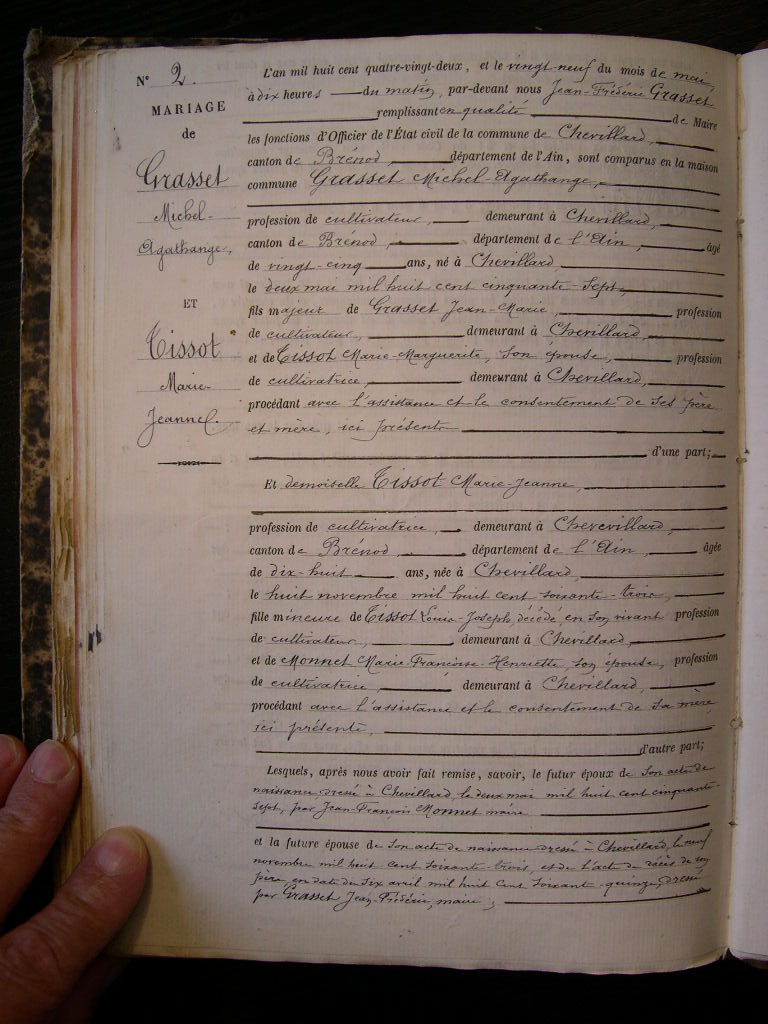 N° 2.
MARIAGE
de
Grasset
Michel-
Agathange,
ET
Tissot
Marie-
Jeanne.
L'an mil huit cent quatre-vingt-deux, et le vingt-neuf du mois de mai,
à dix heures du matin, par-devant nous Jean-Frédéric Grasset
remplissant en qualité de Maire
les fonctions d'Officier de l'État civil de la commune de Chevillard,
canton de Brénod, département de l'Ain, sont comparus en la maison
commune Grasset Michel-Agathange,
profession de cultivateur, demeurant à Chevillard,
canton de Brénod, département de l'Ain, âgé
de vingt-cinq ans, né à Chevillard
le deux mai mil huit cent cinquante-sept,
fils majeur de Grasset Jean-Marie, profession
de cultivateur, demeurant à Chevillard,
et de Tissot Marie-Marguerite, son épouse, profession
de cultivatrice, demeurant à Chevillard,
procédant avec l'assistance et le consentement de ses père
et mère, ici présents
d'une part;
Et demoiselle Tissot Marie-Jeanne,
profession de cultivatrice, demeurant à Cheverillard,
canton de Brénod, département de l'Ain, âgée
de dix-huit ans, née à Chevillard,
le huit novembre mil huit cent soixante-trois,
fille mineure de Tissot Louis-Joseph, décédé, en son vivant profession
de cultivateur, demeurant à Chevillard,
et de Monnet Marie-Francine-Henriette, son épouse, profession
de cultivatrice, demeurant à Chevillard,
procédant avec l'assistance et le consentement de sa mère
ici présente,
d'autre part;
Lesquels, après nous avoir fait remise, savoir, le futur époux de son acte de
naissance, dressé à Chevillard, le deux mai mil huit cent cinquante-
sept, par Jean-François Monnet maire
et la future épouse de son acte de naissance dressé à Chevillard, le neuf
novembre mil huit cent soixante-trois, et de l'acte de décès de son
père, en date du six avril mil huit cent soixante-quinze, dressé
par Grasset Jean-Frédéric, maire;